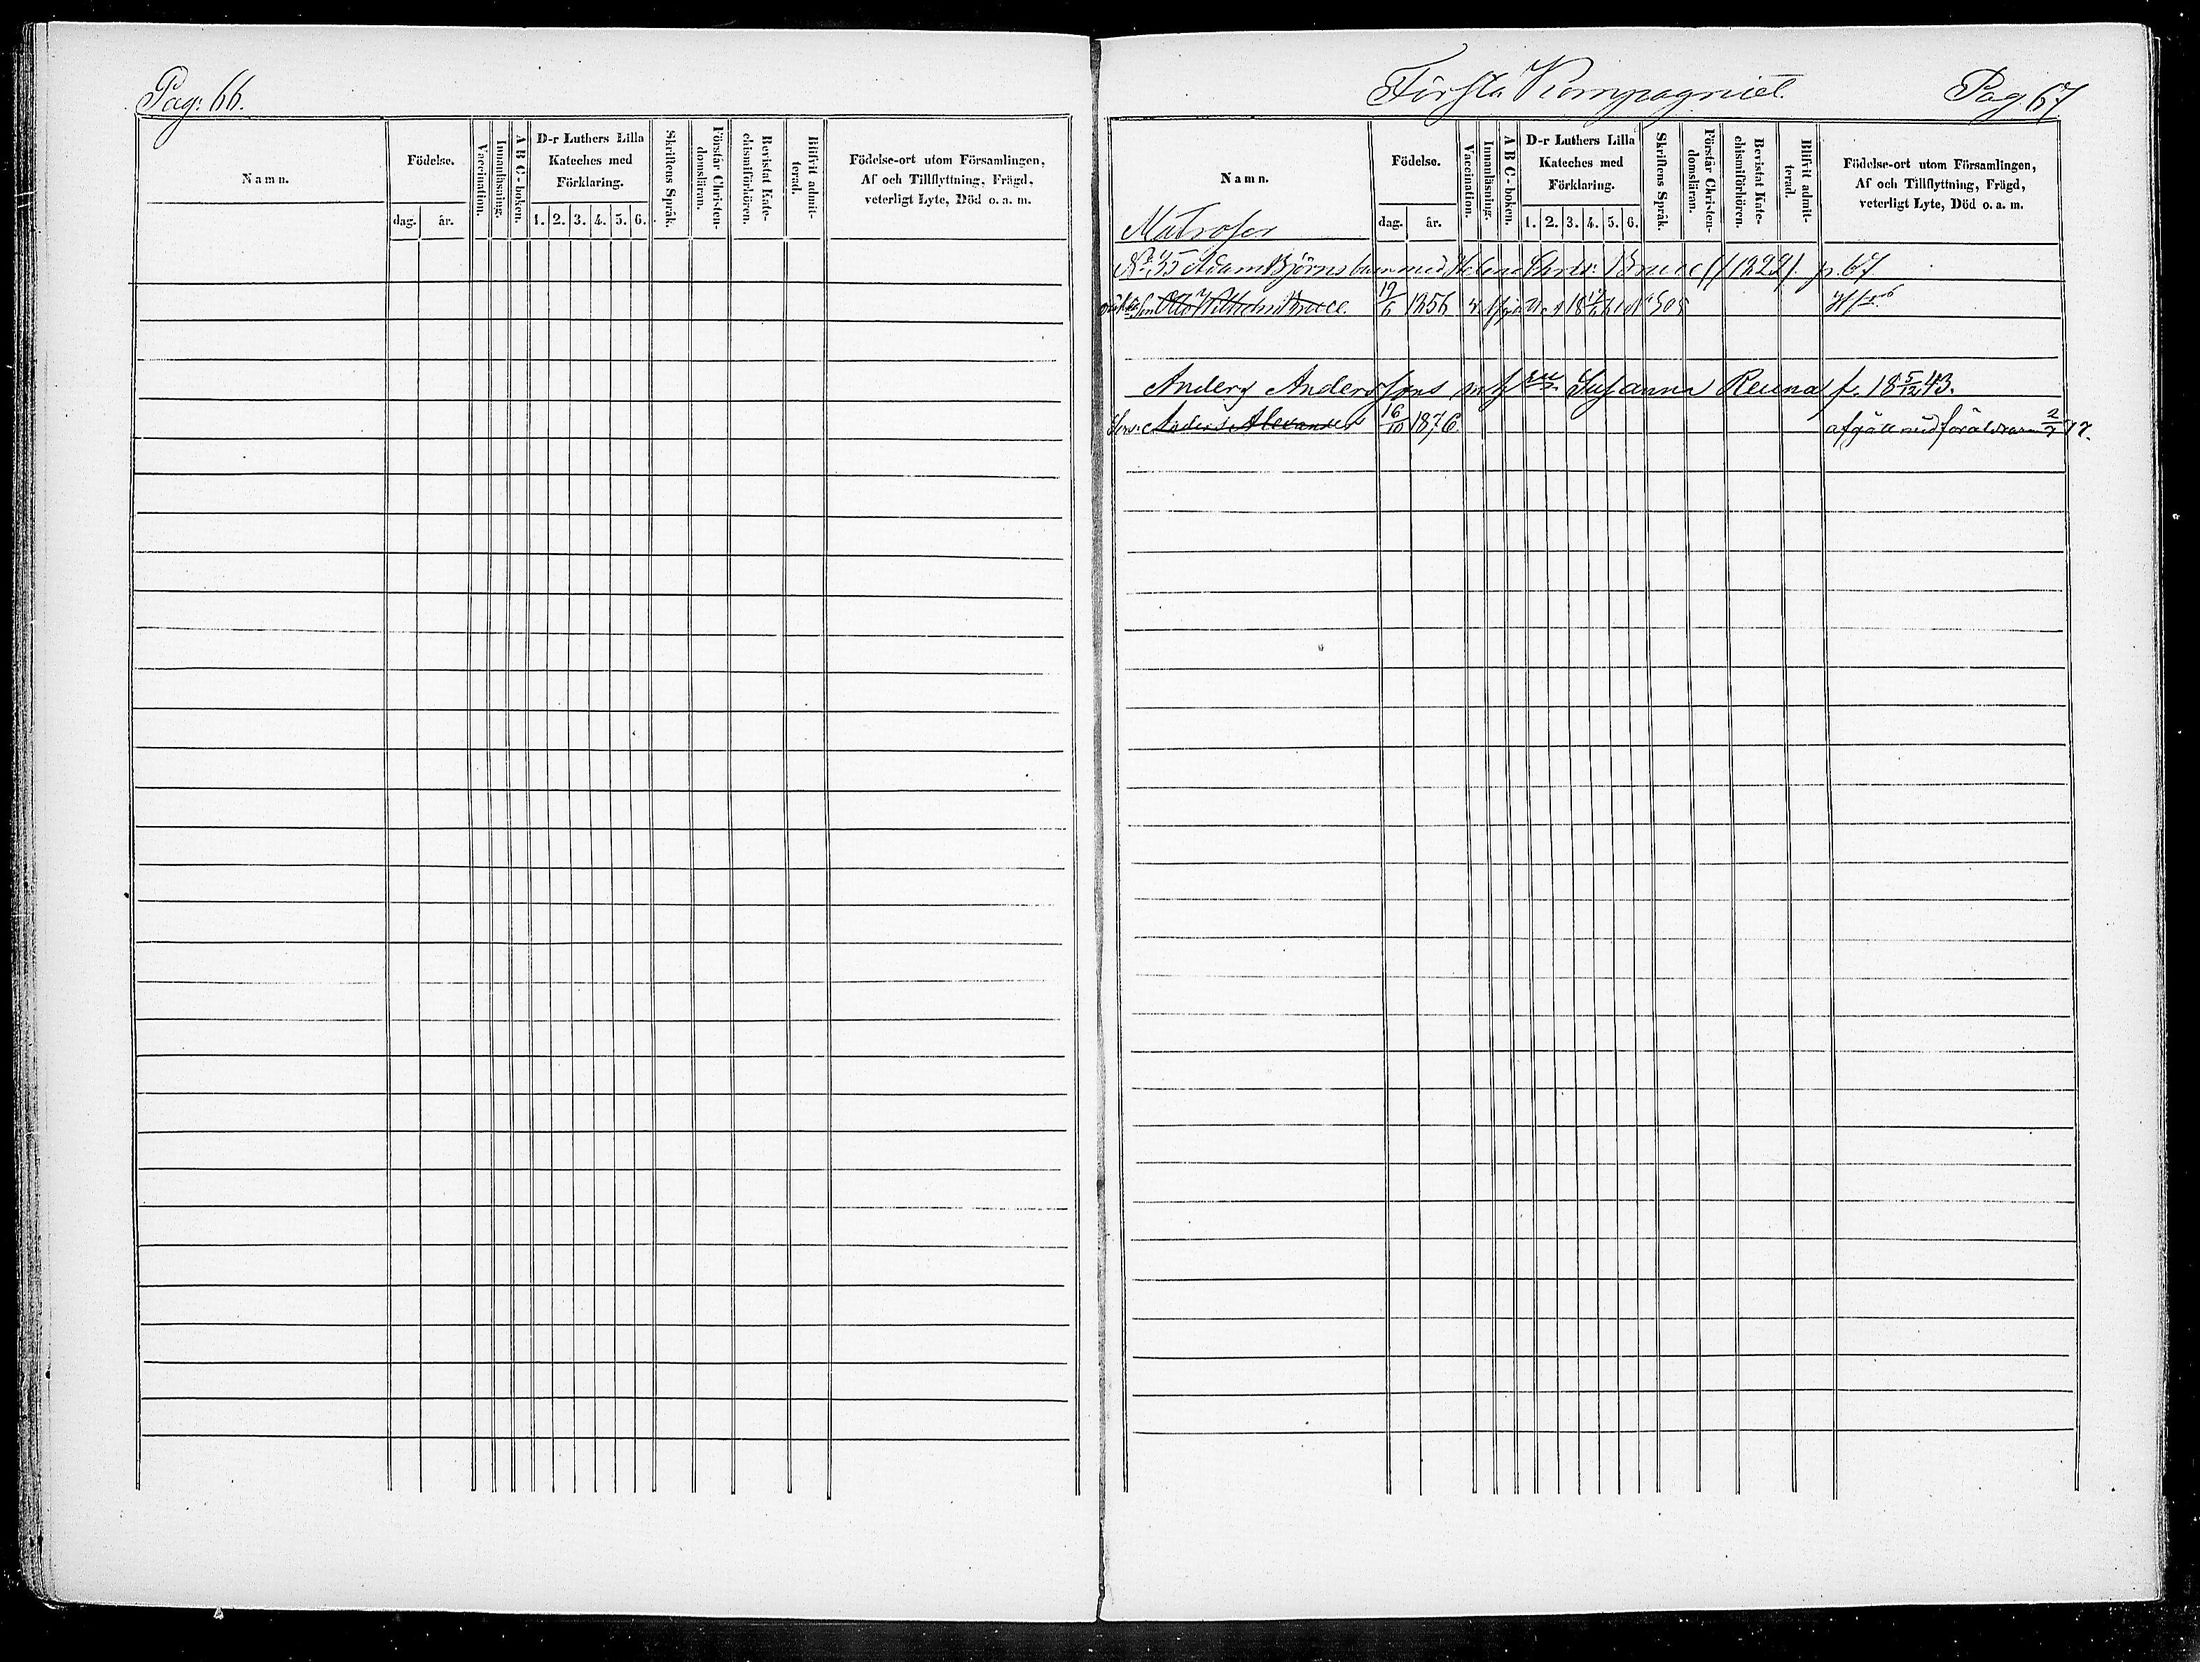 Pag: 66.
Namn.
Födelse.
dag. år.
Vaccination.
Innanläsning.
A B C - boken.
D-r Luthers Lilla
Kateches med
Förklaring.
1. 2. 3. 4. 5. 6.
Skriftens Språk.
Förstår Christen-
domsläran.
Bevistat Kate-
chismiförhören.
Blifvit admit-
terad.
Födelse-ort utom Församlingen,
Af och Tillflyttning, Frägd,
veterligt Lyte, Död o. a. m.
Första Kompagniet.
Pag. 67
Namn.
Matroser
Födelse.
dag. år.
Vaccination.
Innanläsning.
A B C - boken.
D-r Luthers Lilla
Kateches med
Förklaring.
1. 2. 3. 4. 5. 6.
Skriftens Språk.
Förstår Christen-
domsläran.
Bevistat Kate-
chismiförhören.
Blifvit admit-
terad.
Födelse-ort utom Församlingen,
Af och Tillflyttning, Frägd,
veterligt Lyte, Död o. a. m.
No 35 Adam Björns barn med Helena Christ: Bruce (f 1822). p. 67
Son Otto Wilhelm Bruce. 1856
Anders Anderssons m h Susanna Renna f. 18 5/12 43.
Son: Anders Alexander 16/10 1876. afgått med föräldrarna 2/7 77.